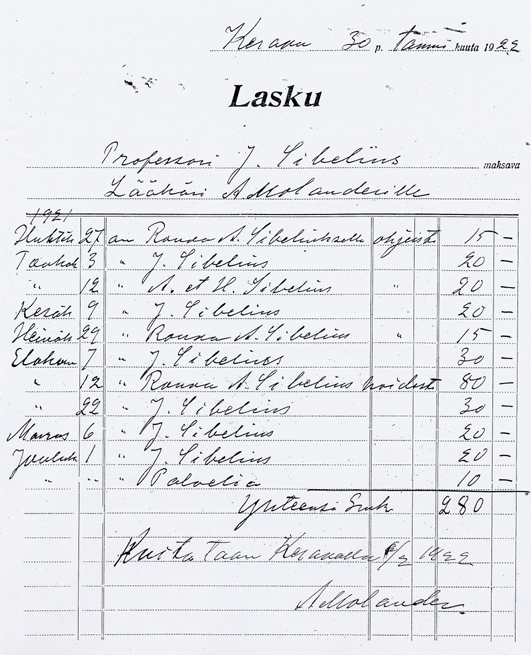 Kerava 30 p. tammi kuuta 1922
Lasku
Professori J. Sibelius maksava
Lääkäri A Molanderille
1921
Huhtik 27 an Rouva A. Sibeliukselle ohjeista 15 –
Toukok 3 " J. Sibelius 20 –
" 12 " A. et H. Sibelius " 20 –
Kesäk 9 " J. Sibelius 20 –
Heinäk 29 " Rouva A. Sibelius " 15 –
Elokuu 7 " J. Sibelius 30 –
" 12 " Rouva A. Sibelius hoidosta 80 –
" 22 " J. Sibelius 30 –
Marras 6 " J. Sibelius 20 –
Jouluk 1 " J. Sibelius 20 –
" " " Palvelia 10 –
Yhteensä Smk 280
Kuitataan Keravalla 6/2 1922
AMolander.